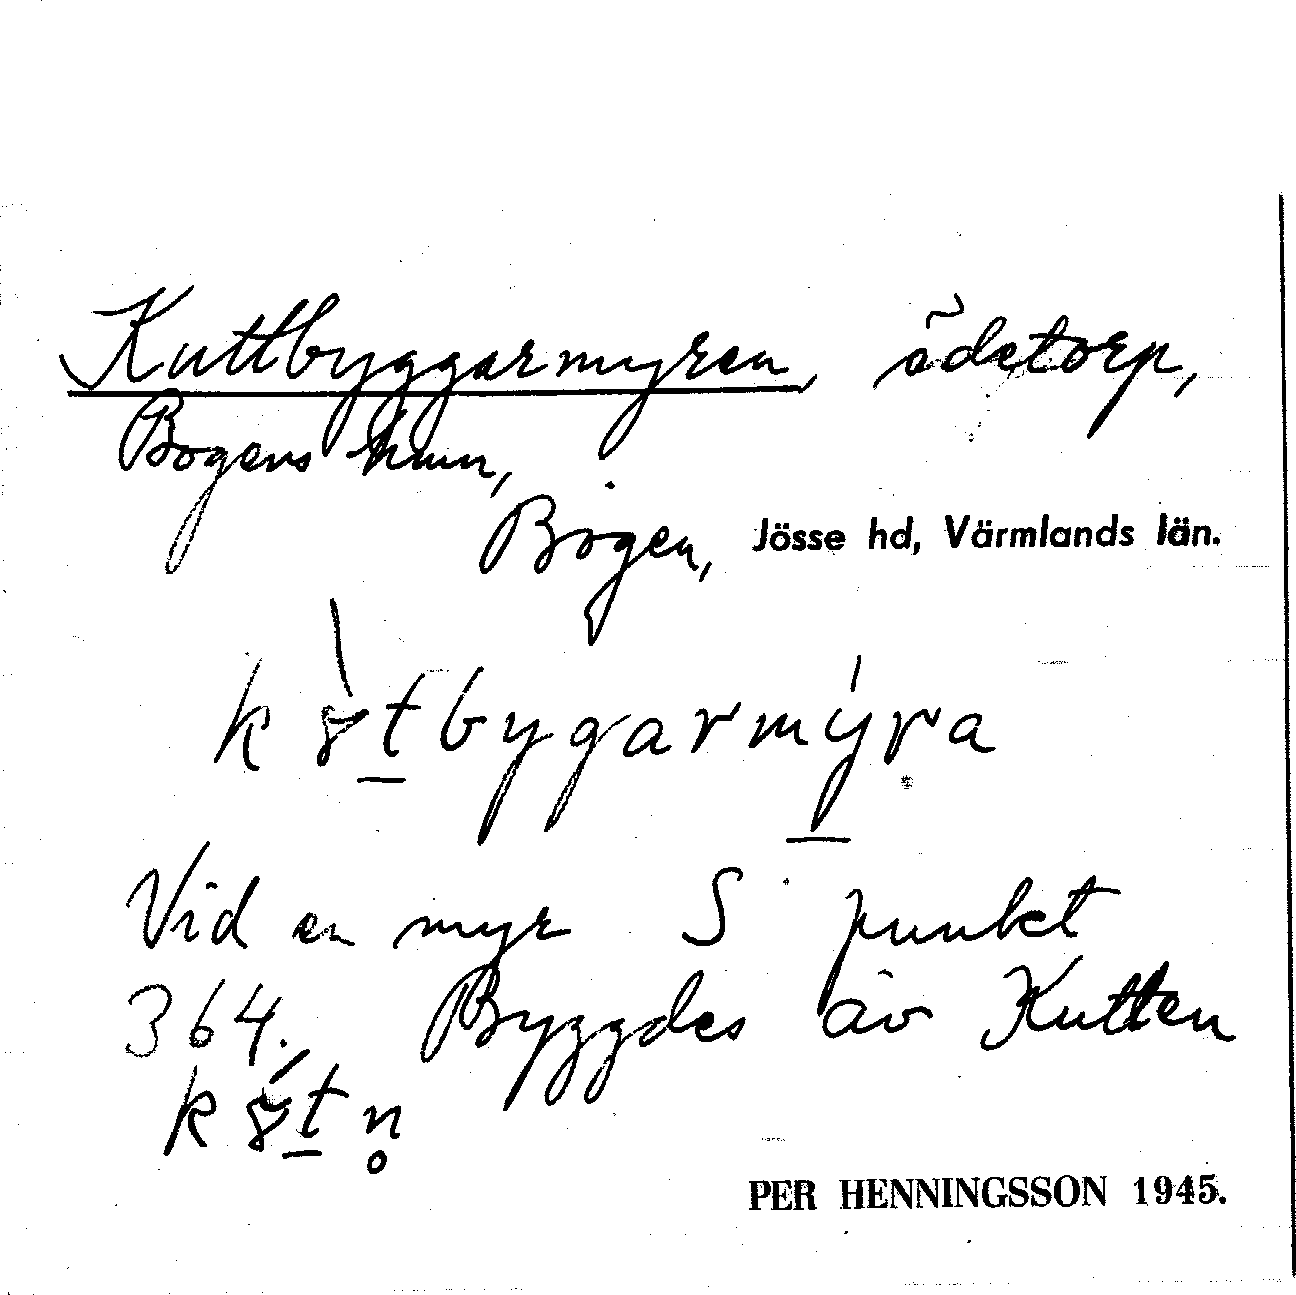 Kuttbyggarmyren, ödetorp,
Bogens kmn,
Bogen, Jösse hd, Värmlands län.
k bygarmýra
Vid en myr S punkt
364. Byggdes av Kutten
PER HENNINGSSON 1945.